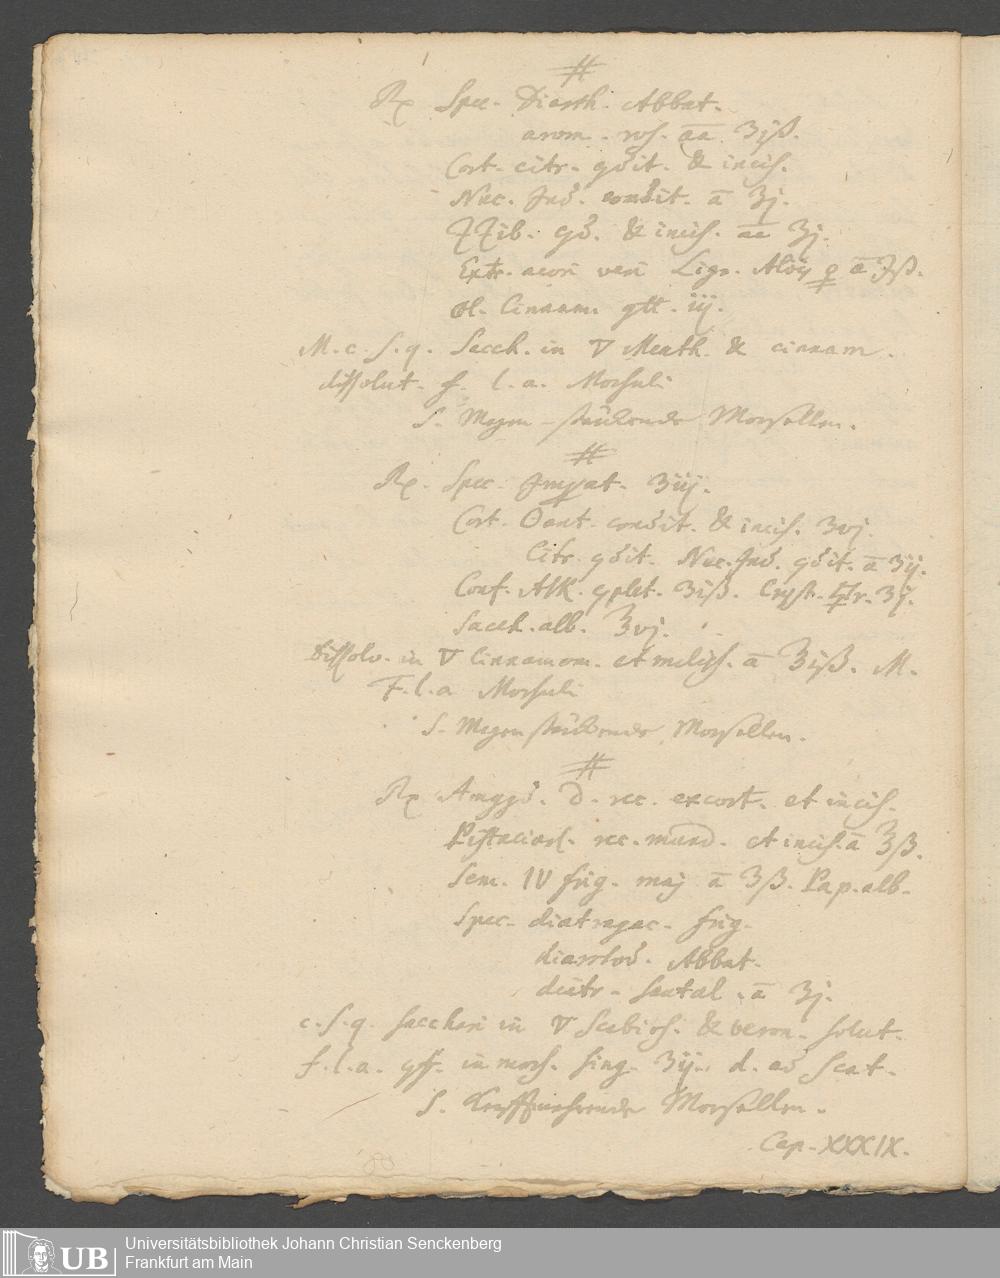 #
Rx Spec. Diarrh. Abbat.
arom. ros. aa ʒjß.
Cort. citr. gdit. & incis.
Nuc. Ind. condit. ā ℥j.
ZZib. gd. & incis. aa ℥j.
Extr. acori veri Lign. Aloes ā ℈ß.
Ol. Cinnam. gtt. iij.
M. c. s. q. Sacch. in ▽ Menth. & cinnam.
dissolut. f. l. a. Morsuli
S. Magen-stärckende Morsellen.
#
Rx. Spec. Imperat. ʒiij.
Cort. Oant. condit. & incis. ʒvj.
Citr. gdit. Nuc. Ind. gdit. ā ʒij.
Conf. Alk. cplet. ʒiß. Cryst. ʒij.
Sacch. alb. ℥vj.
Dissolv. in ▽ Cinnamom. et meliss. ā ℥jß. M.
F. l. a Morsuli
S. Magen stärckende Morsellen.
#
Rx Amygd. D. rec. excort. et incis.
Pistacior. rec. mund. et incis. ā ℥ß.
Sem. IV frig. maj ā ʒß. Pap. alb.
Spec. diatragac. frig.
diarrhod. Abbat.
diatr. santal. ā ʒj.
c. s. q. sacchari in ▽ Scabios. & veron. solut.
f. l. a. in mors. sing. ʒij. d. ad scat.
S. Morsellen.
Cap. XXXIX.
UB
Universitätsbibliothek Johann Christian Senckenberg
Frankfurt am Main